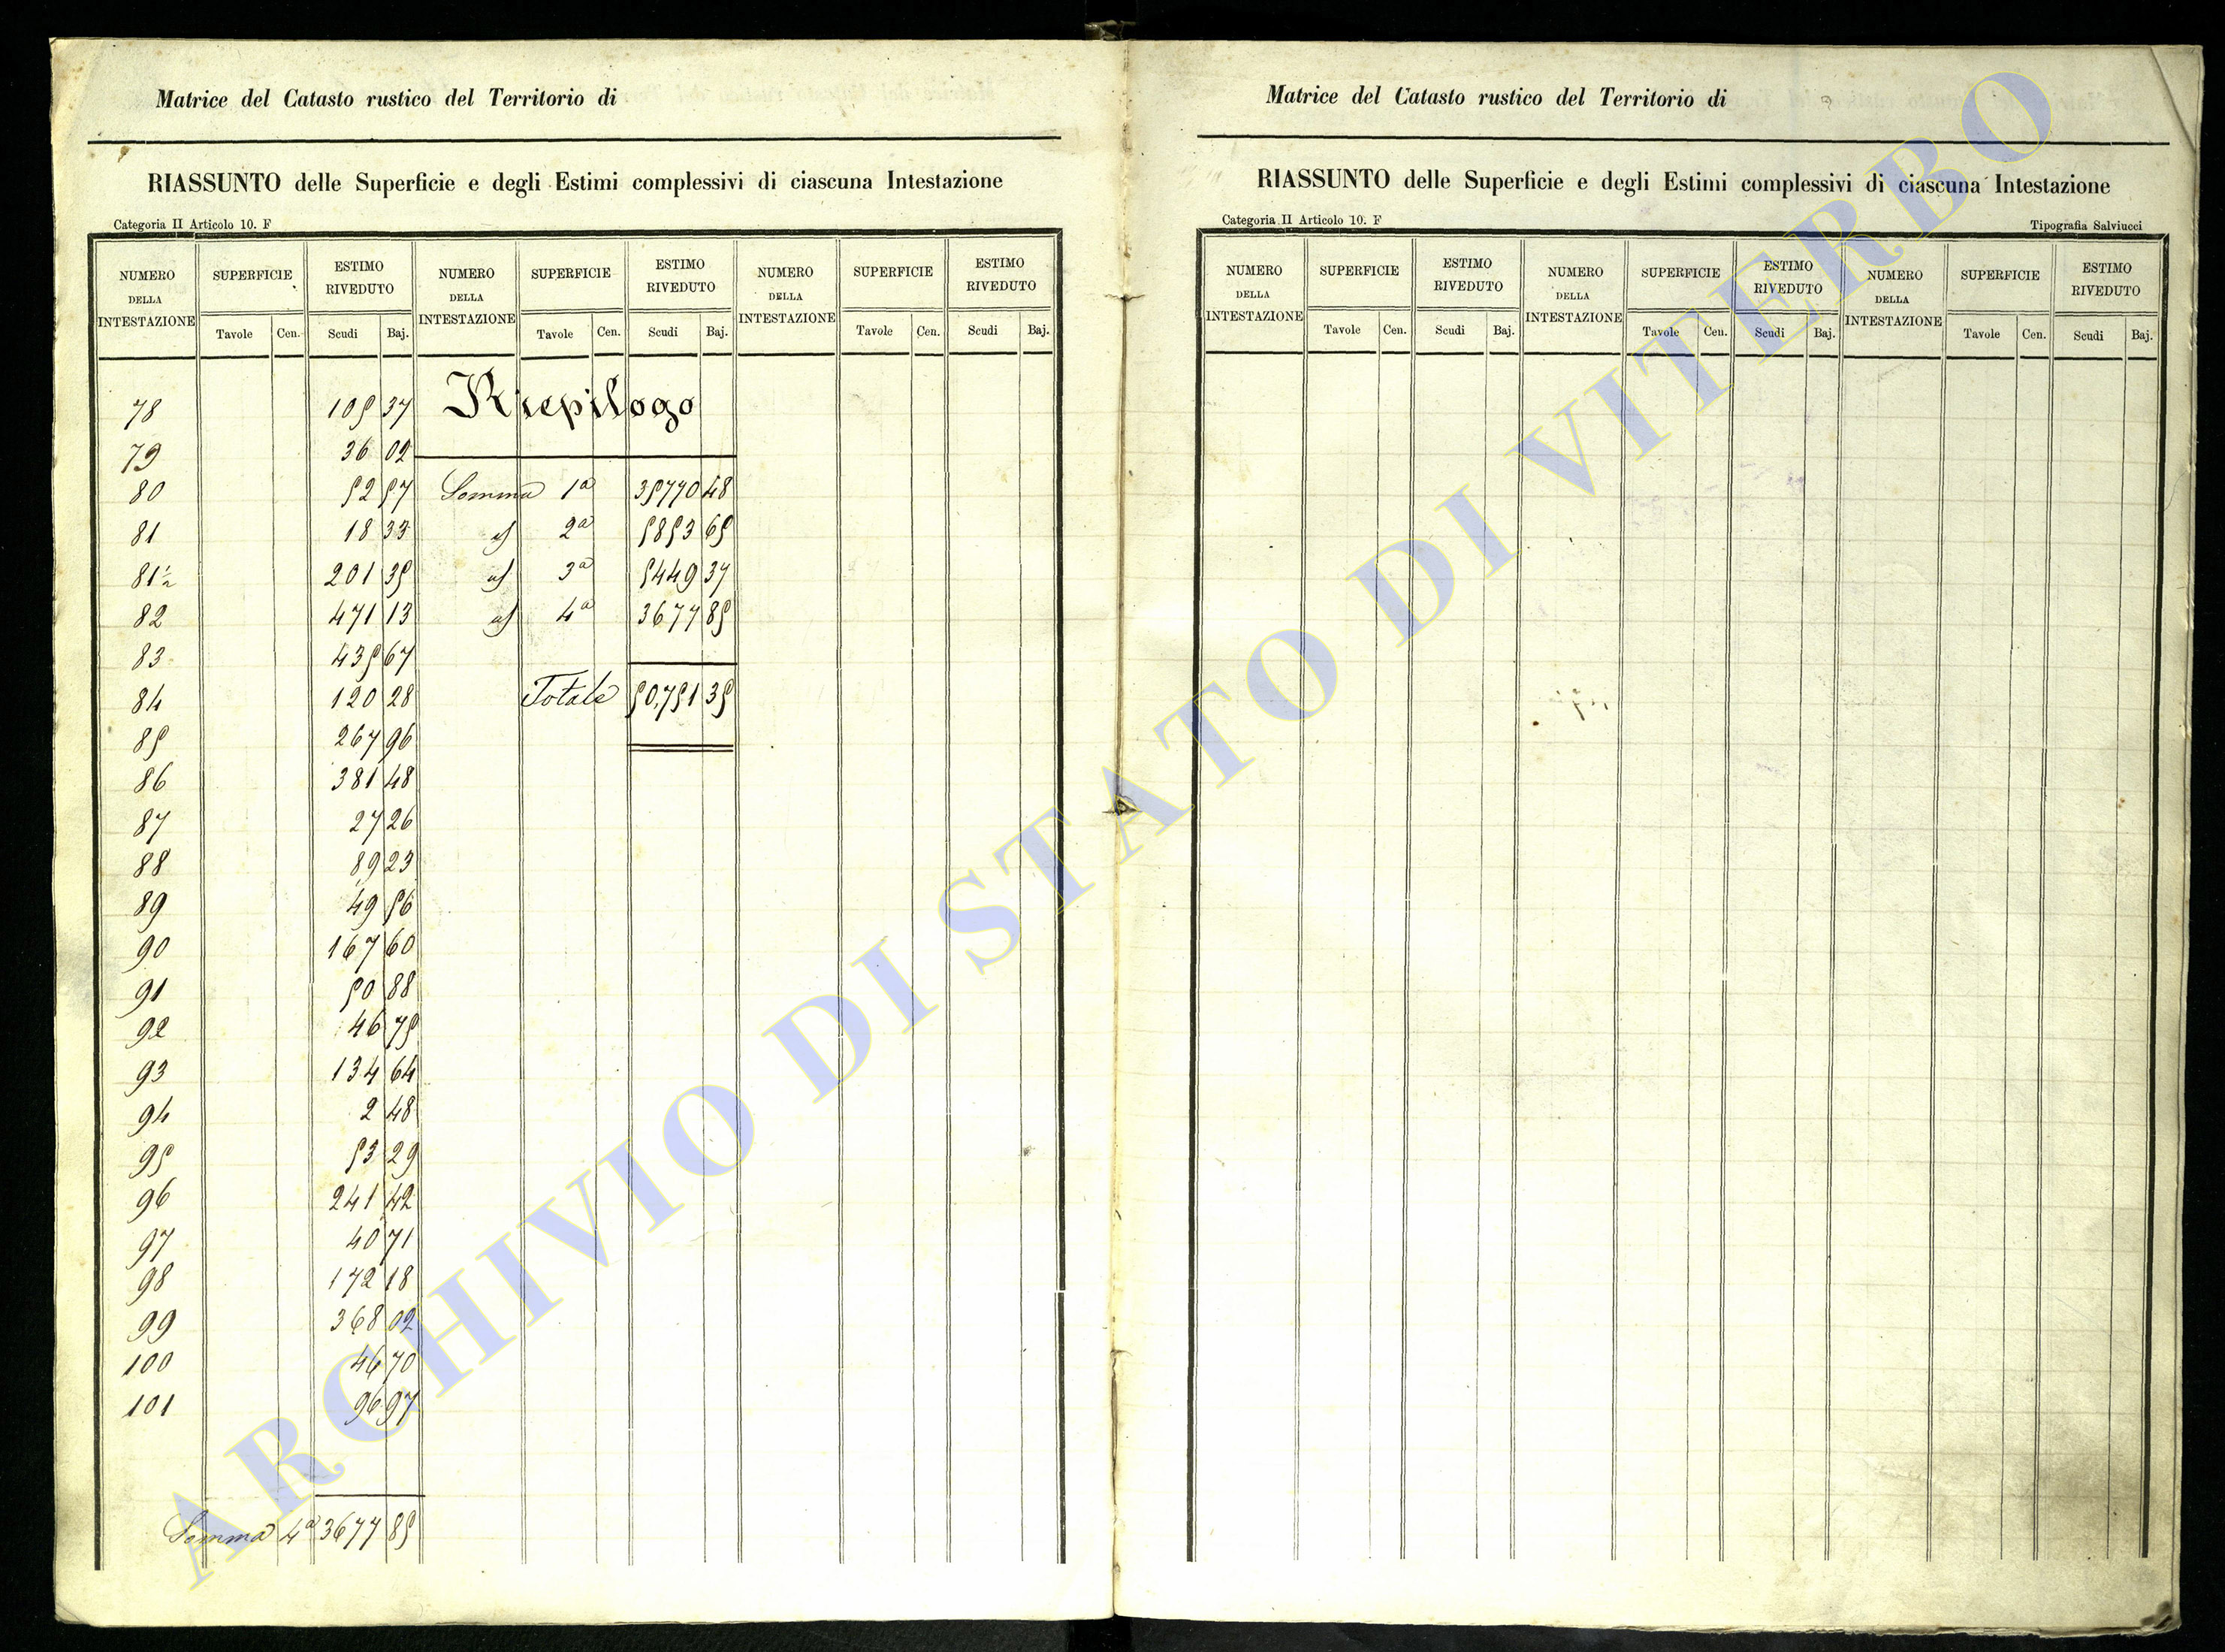 Matrice del Catasto rustico del Territorio di
RIASSUNTO delle Superficie e degli Estimi complessivi di ciascuna Intestazione
Categoria II Articolo 10. F
NUMERO DELLA INTESTAZIONE SUPERFICIE ESTIMO RIVEDUTO NUMERO DELLA INTESTAZIONE SUPERFICIE ESTIMO RIVEDUTO NUMERO DELLA INTESTAZIONE SUPERFICIE ESTIMO RIVEDUTO
Tavole Cen. Scudi Baj. Tavole Cen. Scudi Baj. Tavole Cen. Scudi Baj.
78 105 37 Riepilogo
79 36 02
80 52 57 Somma 1a 35770 48
81 18 33 2a 5853 65
81½ 201 35 3a 5449 37
82 471 13 4a 3677 85
83 435 67
84 120 28 Totale 50,751 35
85 267 96
86 381 48
87 27 26
88 89 23
89 49 56
90 167 60
91 50 88
92 46 75
93 134 64
94 2 48
95 53 29
96 241 42
97 40 71
98 172 18
99 368 02
100 46 70
101 96 97
Somma 4a 3677 85
Matrice del Catasto rustico del Territorio di
RIASSUNTO delle Superficie e degli Estimi complessivi di ciascuna Intestazione
Categoria II Articolo 10. F Tipografia Salviucci
NUMERO DELLA INTESTAZIONE SUPERFICIE ESTIMO RIVEDUTO NUMERO DELLA INTESTAZIONE SUPERFICIE ESTIMO RIVEDUTO NUMERO DELLA INTESTAZIONE SUPERFICIE ESTIMO RIVEDUTO
Tavole Cen. Scudi Baj. Tavole Cen. Scudi Baj. Tavole Cen. Scudi Baj.
ARCHIVIO DI STATO DI VITERBO